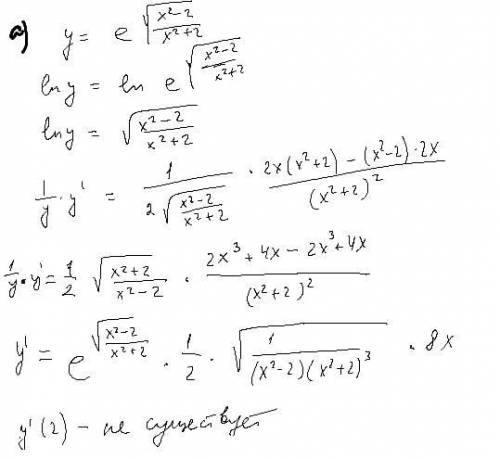 a) y = e^√((x²-2)/(x²+2))
ln y = ln e^√((x²-2)/(x²+2))
ln y = √((x²-2)/(x²+2))
1/y · y' = 1/(2√((x²-2)/(x²+2))) · (2x(x²+2) - (x²-2)·2x)/(x²+2)²
1/y · y' = 1/2 √((x²+2)/(x²-2)) · (2x³+4x-2x³+4x)/(x²+2)²
y' = e^√((x²-2)/(x²+2)) · 1/2 · √(1/((x²-2)(x²+2)³)) · 8x
y'(2) - не существует